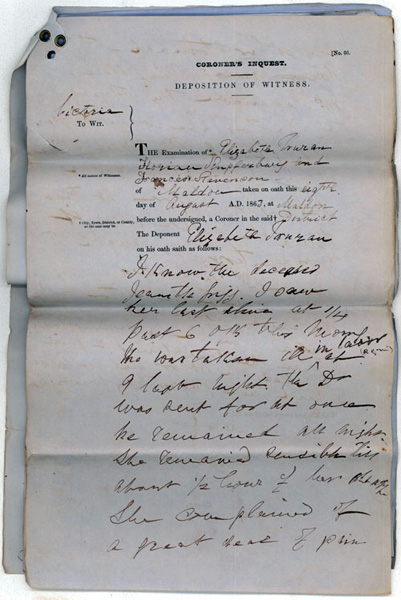 [No. 60.
CORONER'S INQUEST.
DEPOSITION OF WITNESS.
Victoria
TO WIT.
THE Examination of* Elizabeth Truran
and
* All names of Witnesses.
Frances Stevenson
of Maldon taken on oath this eighth
day of August A.D. 1867, at Maldon
† City, Town, District, or County, as the case may be.
before the undersigned, a Coroner in the said† District
The Deponent Elizabeth Truran
on his oath saith as follows:
I know the deceased
I saw
her last alive at 1/4
past 6 o'ck this morn
She was taken ill in labor at
9 last night the Dr
was sent for at once
he remained all night.
She remained sensible till
about 1/2 hour of her death
She complained of
a great deal of pain